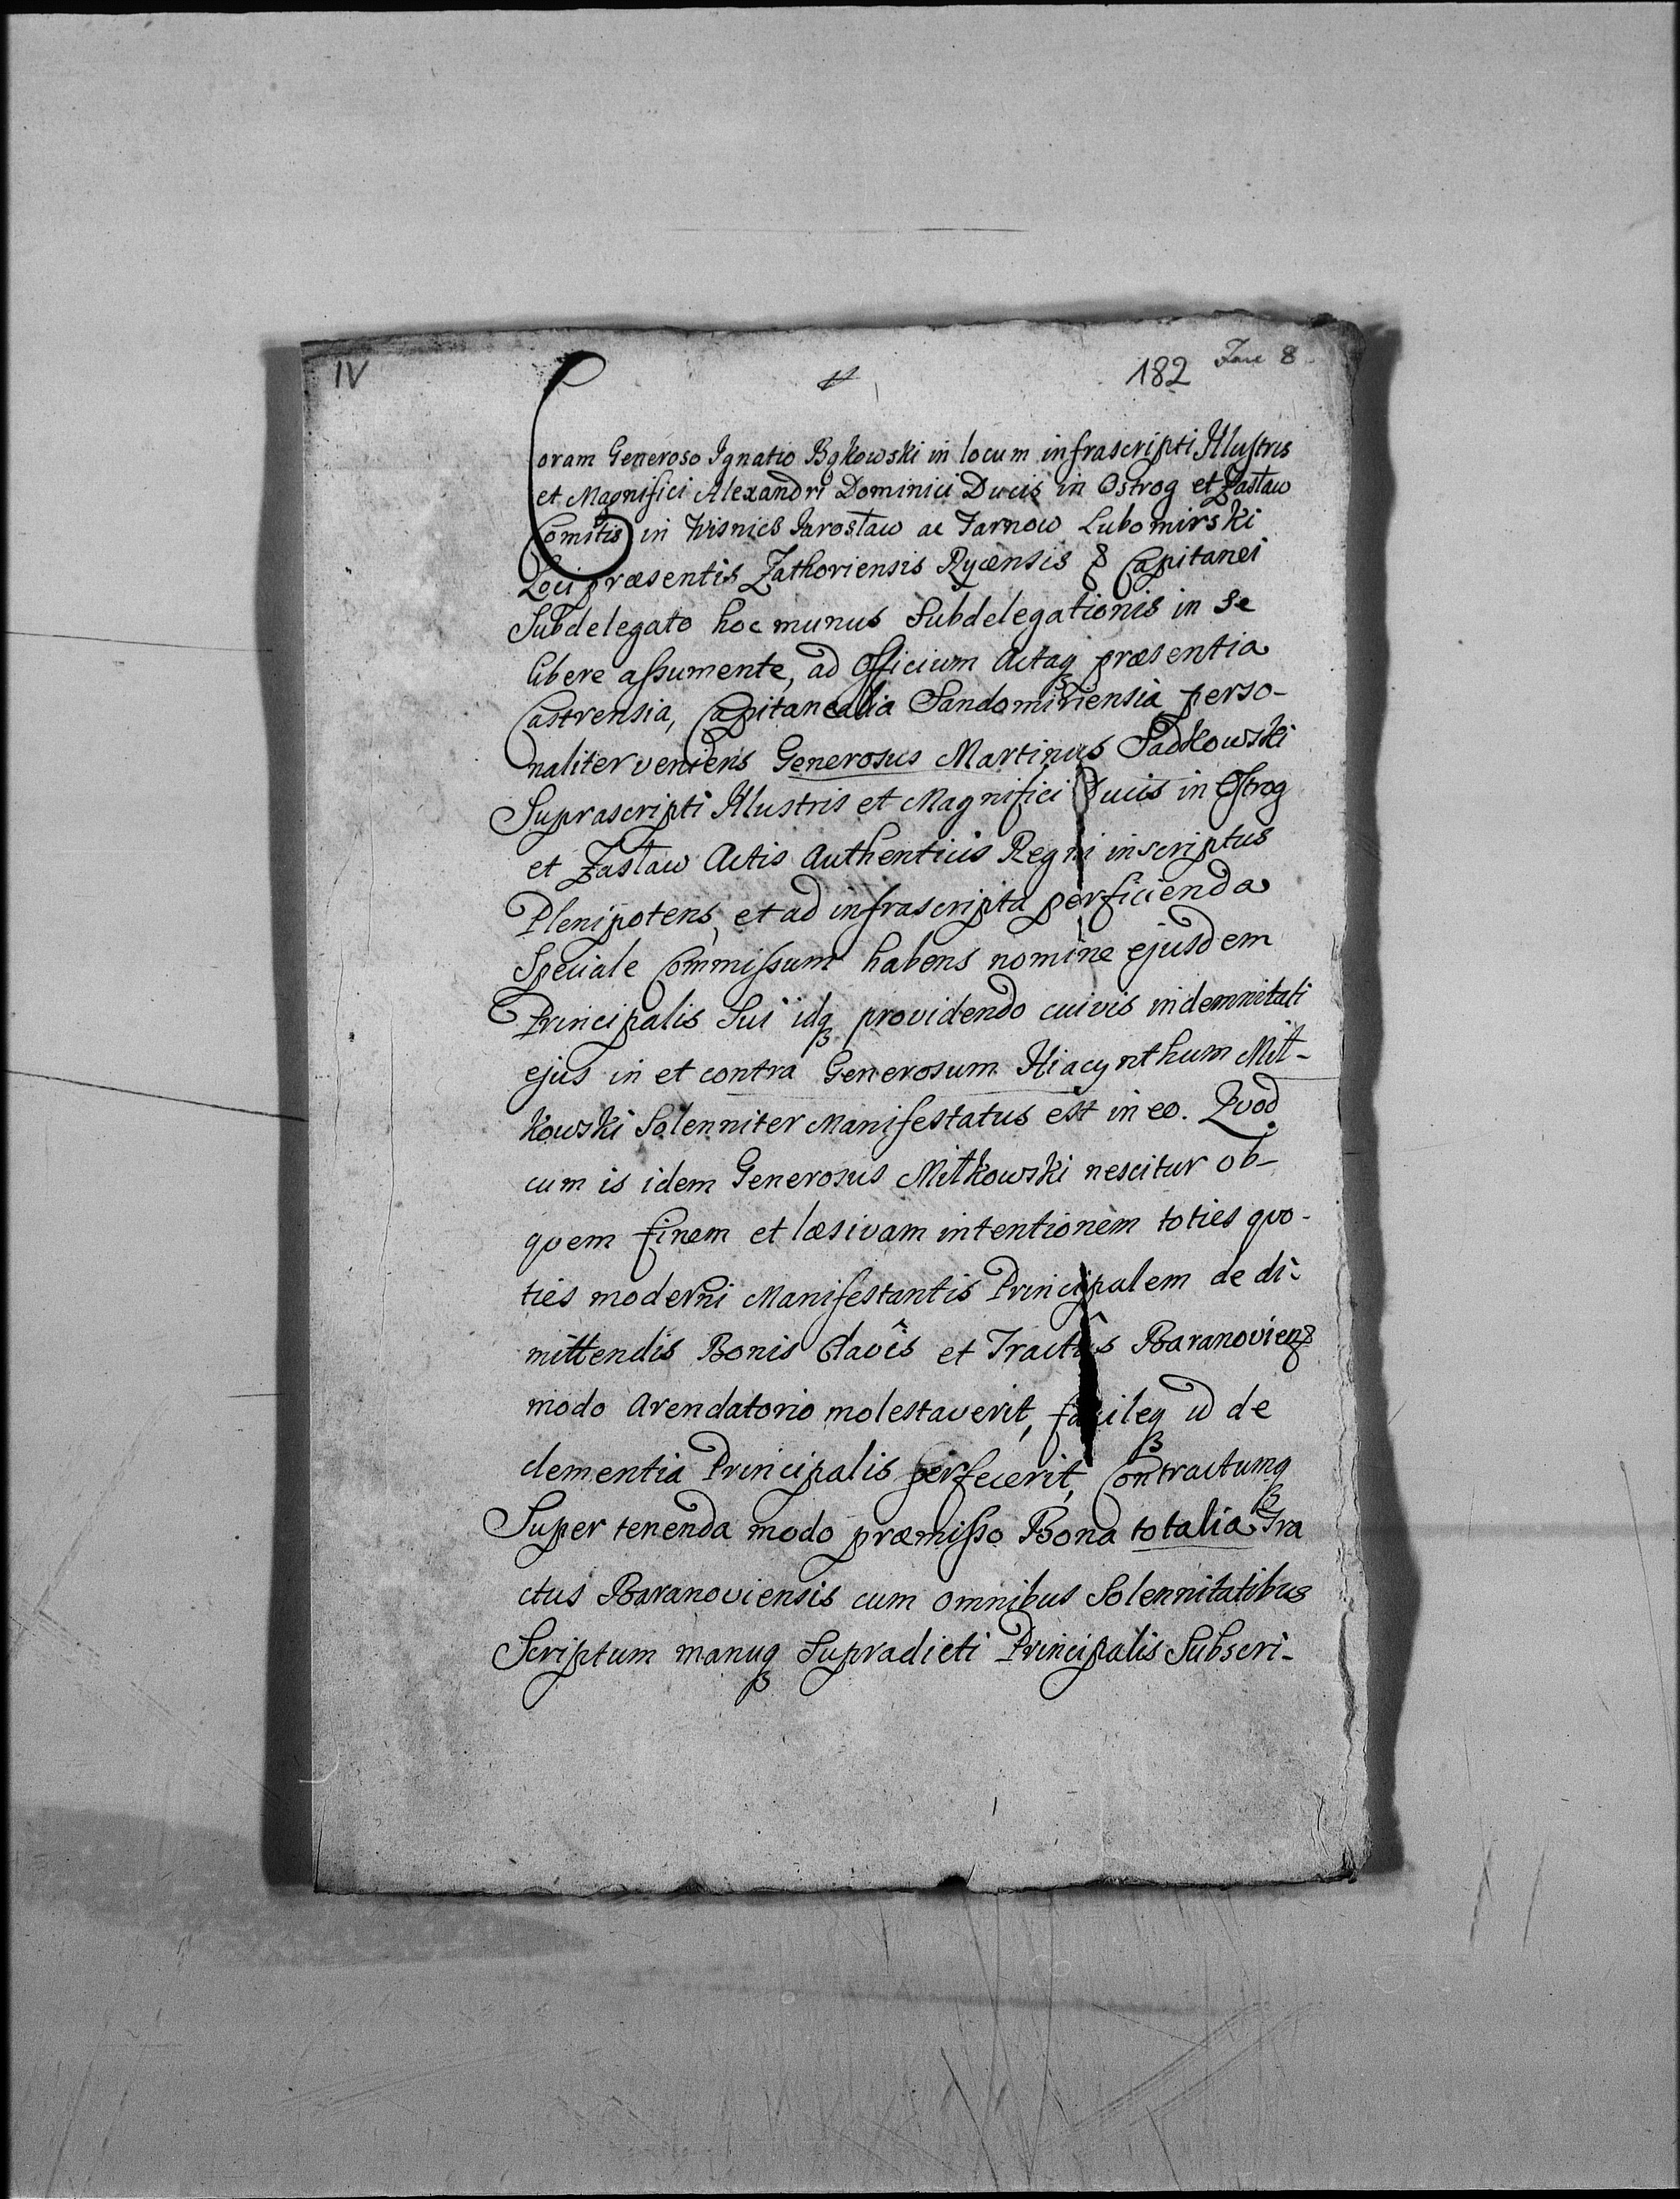 IV
182
8
Coram Generoso Ignatio Bąkowski in locum infrascripti Illustris
et Magnifici Alexandri Dominici Ducis in Ostrog et Zasław
Comitis in Wisnicz Jarosław ac Tarnow Lubomirski
Loci præsentis Zathoriensis Rycensis & Capitanei
Subdelegato hoc munus Subdelegationis in se
libere assumente, ad Officium Actaq præsentia
Castrensia, Capitanealia Sandomiriensia perso-
naliter veniens Generosus Martinus Sadkowski
Suprascripti Illustris et Magnifici Ducis in Ostrog
et Zasław Actis Authenticis Regni inscriptus
Plenipotens, et ad infrascripta perficienda
Speciale Commissum habens nomine ejusdem
Principalis Sui idq providendo cuivis indemnitati
ejus in et contra Generosum Hiacynthum Mit-
kowski Solenniter Manifestatus est in eo. Quod
cum is idem Generosus Mitkowski nescitur ob-
quem finem et læsivam intentionem toties quo-
ties moderni Manifestantis Principalem de di-
mittendis Bonis Clavîs et Tractûs Baranoviens
modo Arendatorio molestaverit, facileq id de
clementia Principalis perfecerit, Contractumq
Super tenenda modo præmisso Bona totalia Tra
ctus Baranoviensis cum omnibus Solennitatibus
Scriptum manuq Supradicti Principalis Subscri-